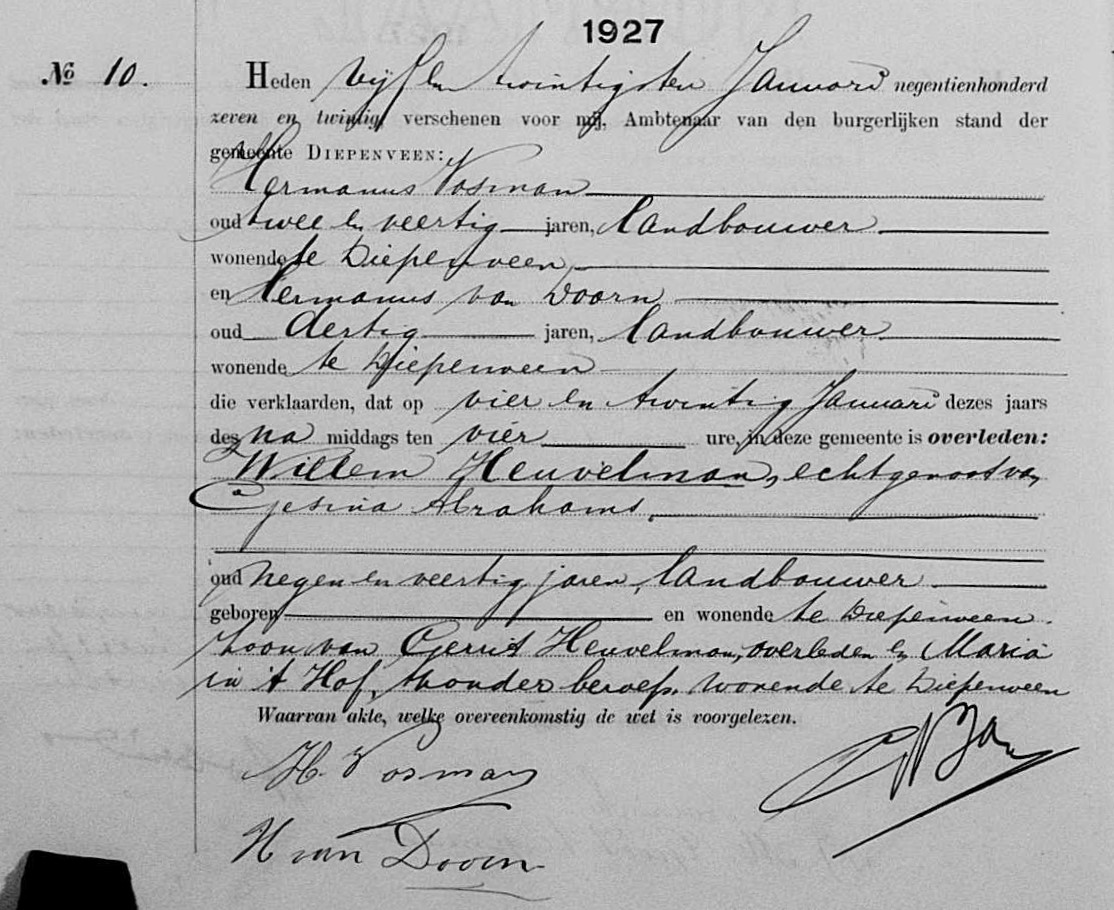 1927
No 10.
Heden vijf en twintigsten Januari negentienhonderd
zeven en twintig, verschenen voor mij, Ambtenaar van den burgerlijken stand der
gemeente DIEPENVEEN:
Hermanus Vosman
oud twee en veertig jaren, landbouwer
wonende te Diepenveen,
en Hermanus van Doorn
oud dertig jaren, landbouwer
wonende te Diepenveen
die verklaarden, dat op vier en twintig Januari dezes jaars
des na middags ten vier ure, in deze gemeente is overleden:
Willem Heuvelman, echtgenoot van
Gesina Abrahams,
oud negen en veertig jaren, landbouwer
geboren en wonende te Diepenveen.
zoon van Gerrit Heuvelman, overleden en Maria
in 't Hof, zonder beroep, wonende te Diepenveen
Waarvan akte, welke overeenkomstig de wet is voorgelezen.
H. Vosman
H van Doorn